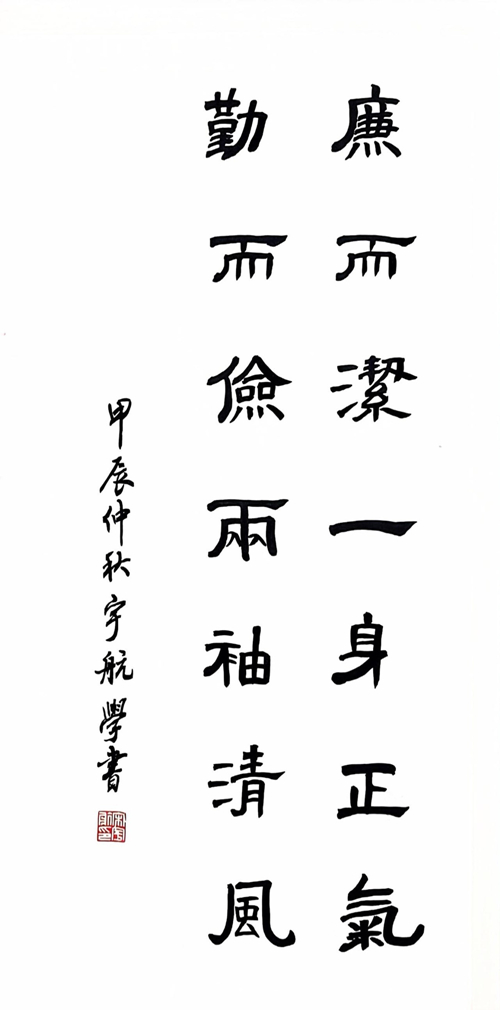 廉而潔一身正氣
勤而儉兩袖清風
甲辰仲秋宇航學書